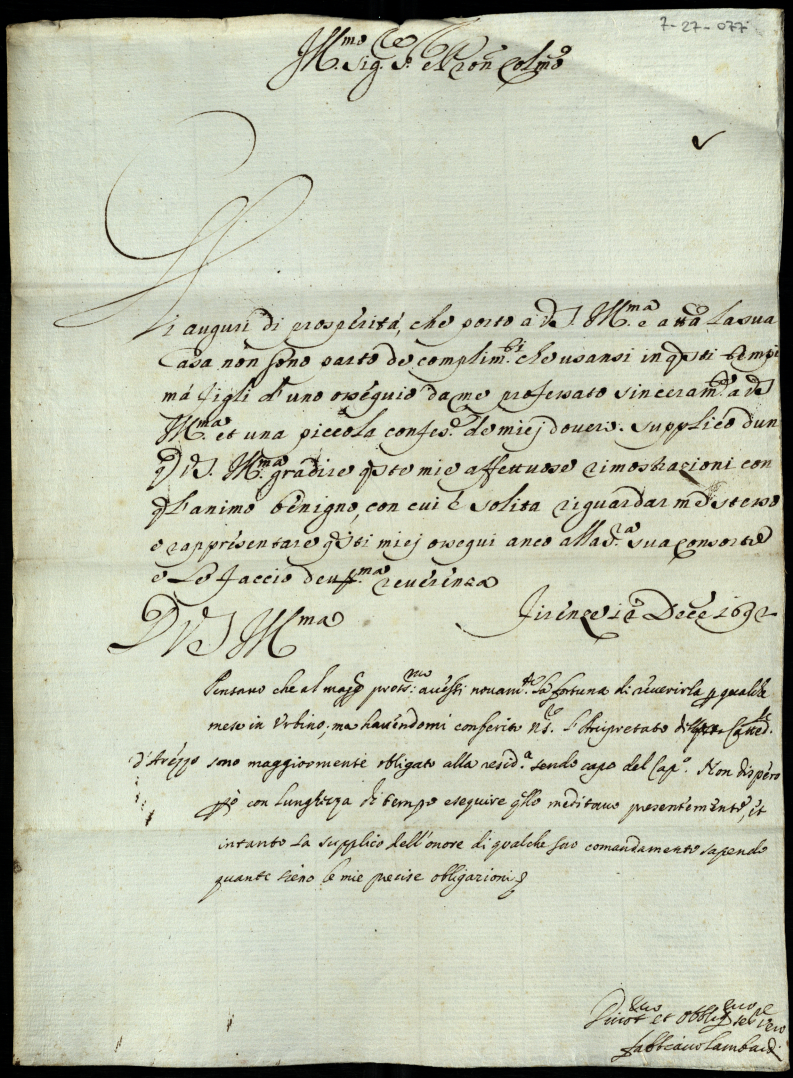 7-27-077
Ill.mo Sig.re e Pron Colmo
Li auguri di prosperità, che porto a V.S. Ill.ma e a tta la sua
Casa non sono parto de complim.ti che usansi in qsti tempi
mà figli d'uno ossequio da me professato sinceram.te a VS
Ill.ma et una piccola confess.e de miej doveri. supplico dun
q VS. Ill.ma gradire qste mie affettuose rimostrazioni con
ql'animo benigno, con cui è solita riguardar me stesso
e rappresentare qsti miej ossequi anco alla S.ra sua Consorte
e Le faccio deuss.ma reverenza
D VS Ill.ma
Firenze 16 Dece 169
Pensavo che al magg prossmo: avessi novam.te la fortuna di riverirla p qualche
mese in Urbino, ma havendomi conferito N.S. l'Arcipretato di Catted.le
d'Arezzo sono maggiormente obligato alla resid.a sendo capo del Cap.o. Non dispero
però con lunghezza di tempo eseguire qllo meditavo presentemente, et
intanto la supplico dell'onore di qualche suo comandamento sapendo
quante sieno le mie precise obligazioni
Divot.mo et Obblig.mo ser.re vero
Fabbiano Lambardi